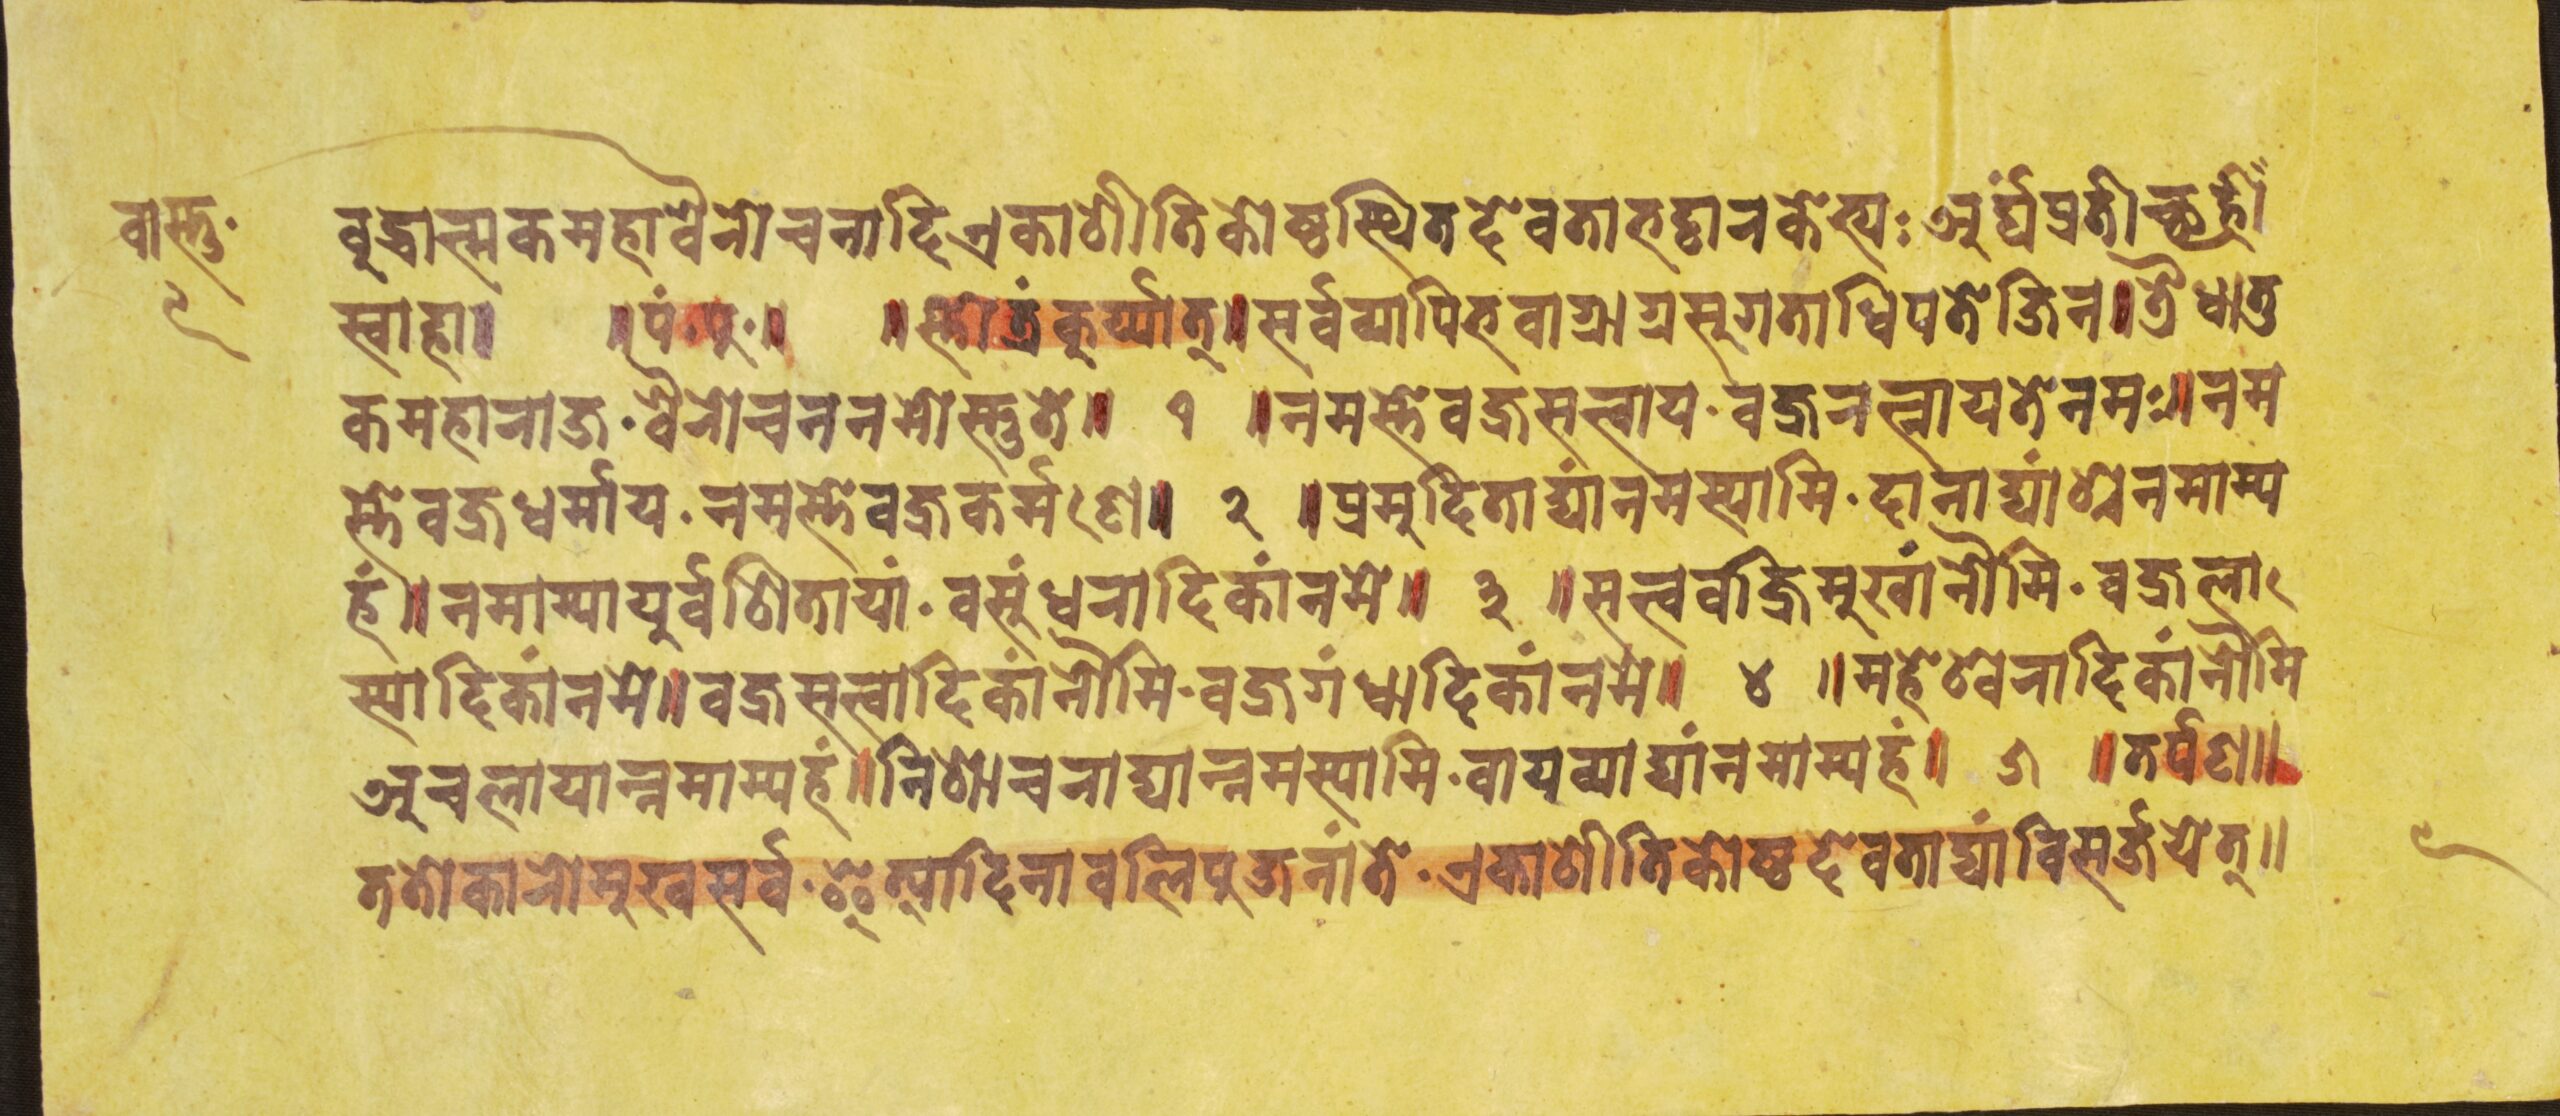 वास्तु·
९
बुद्धात्मकमहावैरोचनादिएकाशीतिकोष्ठस्थितदेवताभट्टारकेभ्यः अर्घ्यंप्रतीच्छह्रीँ
स्वाहा॥ ॥पं·पु·॥ ॥स्तोत्रंकुर्य्यात्॥सर्वव्यापिभवाग्राग्रसुगताधिपतेजिन॥त्रैधातु
कमहाराज·वैरोचननमोस्तुते॥ १ ॥नमस्तेवज्रसत्त्वाय·वज्ररत्नायतेनमः॥नम
स्तेवज्रधर्माय·नमस्तेवज्रकर्मणे॥ २ ॥प्रमुदिताद्यांनमस्यामि·दानाद्यांश्चनमाम्य
हं॥नमाम्यायुर्वशितायां·वसुंधरादिकांनमे॥ ३ ॥सत्त्ववज्रिमुखांनौमि·वज्रला
स्यादिकांनमे॥वज्रसत्त्वादिकांनौमि·वज्रगंधादिकांनमे॥ ४ ॥महेश्वरादिकांनौमि
अचलायान्नमाम्यहं॥निशाचराद्यान्नमस्यामि·वायव्याद्यांनमाम्यहं॥ ५ ॥तर्पण॥
ततोकारोमुखसर्व·ॐत्यादिनावलिपुजनांते·एकाशीतिकोष्ठदेवताद्यांविसर्जयेत्॥
९